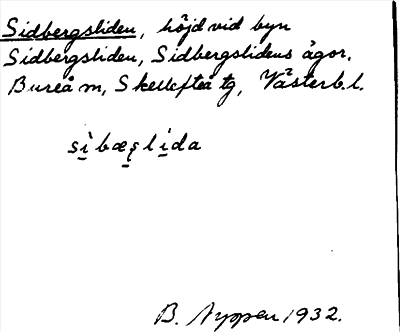 Sidbergsliden, höjd vid byn
Sidbergsliden, Sidbergslidens ägor,
Bureå m, Skellefteå tg, Västerb. l.
sı̀bæʂlida
B. Nyppen 1932.